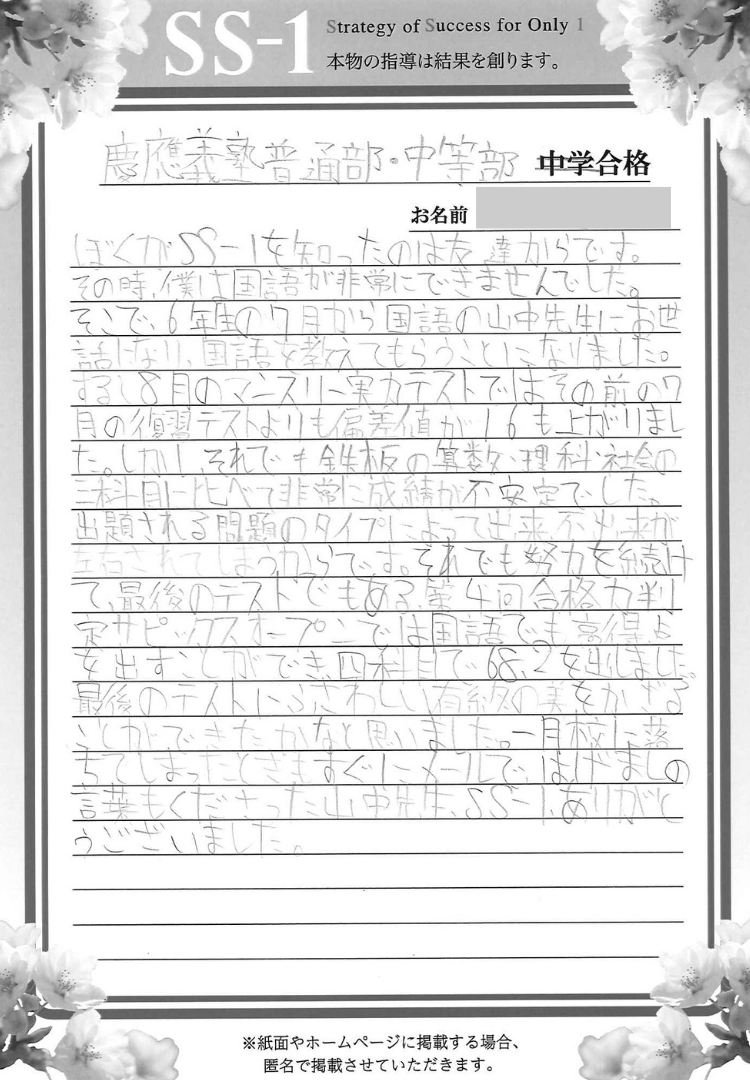 SS-1 Strategy of Success for Only 1
本物の指導は結果を創ります。
慶應義塾普通部・中等部 中学合格
お名前
ぼくがSS-1を知ったのは友達からです。
その時、僕は国語が非常にできませんでした。
そこで、6年生の7月から国語の山中先生にお世
話になり、国語を教えてもらうことになりました。
するし8月のマンスリー実力テストではその前の7
月の復習テストよりも偏差値が16も上がりまし
た。しかし、それでも鉄板の算数・理科・社会の
三科目に比べて非常に成績が不安定でした。
出題される問題のタイプによって出来不出来が
左右されてしまうからです。それでも努力を続け
て、最後のテストでもある、第4回合格力判
定サピックスオープンでは国語でも高得点
を出すことができ、四科目で68.2を出しました。
最後のテストにふさわしい有終の美をかざる
ことができたかなと思いました。一月校に落
ちてしまったときもすぐにメールで、はげましの
言葉もくださった山中先生、SS-1、ありがと
うございました。
※紙面やホームページに掲載する場合、
匿名で掲載させていただきます。